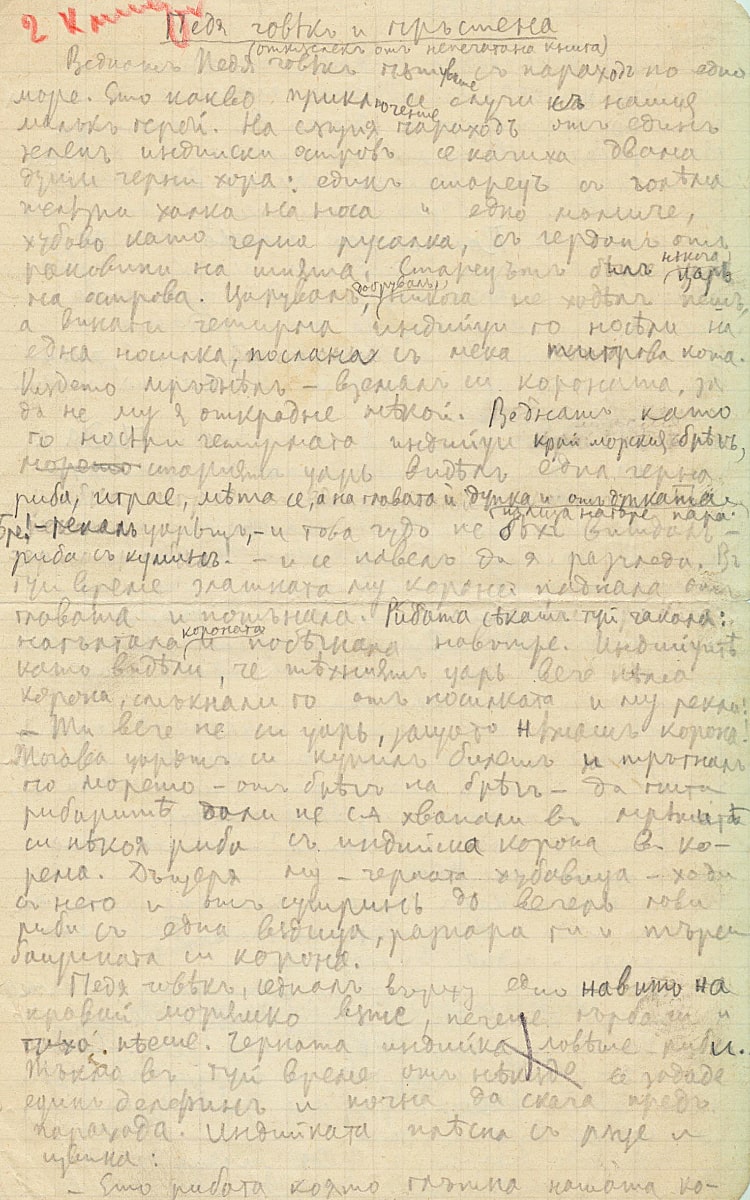 Педя човѣкъ и пръстена
(откѫслекъ отъ непечатана книга)
Веднажъ Педя човѣкъ пѫтуваше съ параходъ по едно
море. Ето какво приключение се случи съ нашия
малъкъ герой. На сѫщия параходъ отъ единъ
зеленъ индийски островъ се качиха двама
души черни хора: единъ старецъ съ голѣма
желѣзна халка на носа и едно момиче,
хубаво като черна русалка, съ герданъ отъ
раковини на шията. Старецътъ билъ нѣкога царь
на острова. Царувалъ, добрувалъ, никога не ходѣлъ пешъ,
а винаги четирма индийци го носѣли на
една носилка, послана съ мека тигрова кожа.
Кѫдето мръднѣлъ – вземалъ си короната, за
да не му я открадне нѣкой. Веднажъ като
го носѣли четирмата индийци край морския брѣгъ,
стариятъ царь видѣлъ една черна
риба, играе, мѣта се, а на главата ѝ дупка и отъ дупката
излиза нагоре пара.
Бре! – рекълъ царьтъ, – и това чудо не бѣхъ виждалъ –
риба съ куминъ. – и се навелъ да я разгледа. Въ
туй време златната му корона паднала отъ
главата и потънала. Рибата сѣкашъ туй чакала:
нагълтала короната и побѣгнала навѫтре. Индийцитѣ
като видѣли, че тѣхниятъ царь вече нѣма
корона, смъкнали го отъ носилката и му рекли:
– Ти вече не си царь, защото нѣмашъ корона!
Тогава царьтъ си купилъ билетъ и тръгналъ
по морето – отъ брѣгъ на брѣгъ – да пита
рибаритѣ дали не сѫ хванали въ мрежитѣ
си нѣкоя риба съ индийска корона въ ко-
рема. Дъщеря му – черната хубавица – ходи
съ него и отъ сутринь до вечерь лови
риби съ една вѫдица, разпаря ги и търси
бащината си корона.
Педя човѣкъ, седналъ върху едно навито на
кравай моряшко вѫже, печеше гърба си и
тихо пѣеше. Черната индийка ловѣше риби.
Тъкмо въ туй време отъ нѣкѫде се зададе
единъ делфинъ и почна да скача предъ
парахода. Индийката плѣсна съ рѫце и
извика:
– Ето рибата която глътна нашата ко-